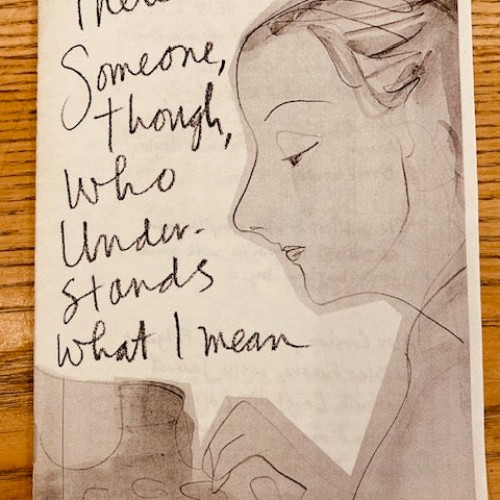 Someone,
though,
Who
Under-
stands
What I mean